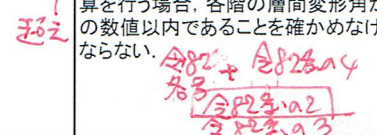 算を行う場合, 各階の層間変形角が
の数値以内であることを確かめなけ
ならない.
令82
令82条の4
各号
令82条の2
令82条の3